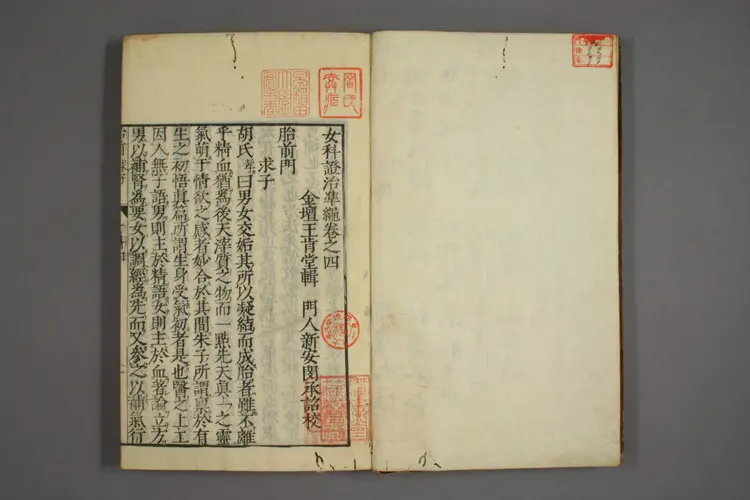 女科證治準繩卷之四
金壇王肯堂輯 門人新安閔承詔校
胎前門
求子
胡氏孝曰男女交姤其所以凝結而成胎者雖不離
乎精血猶為後天滓質之物而一點先天真一之靈
氣萌于情欲之感者妙合於其間朱子所謂稟於有
生之初悟眞篇所謂生身受氣初者是也醫之上工
因人無子語男則主於精語女則主於血著論立方
男以補腎為要女以調經為先而又參之以補氣行